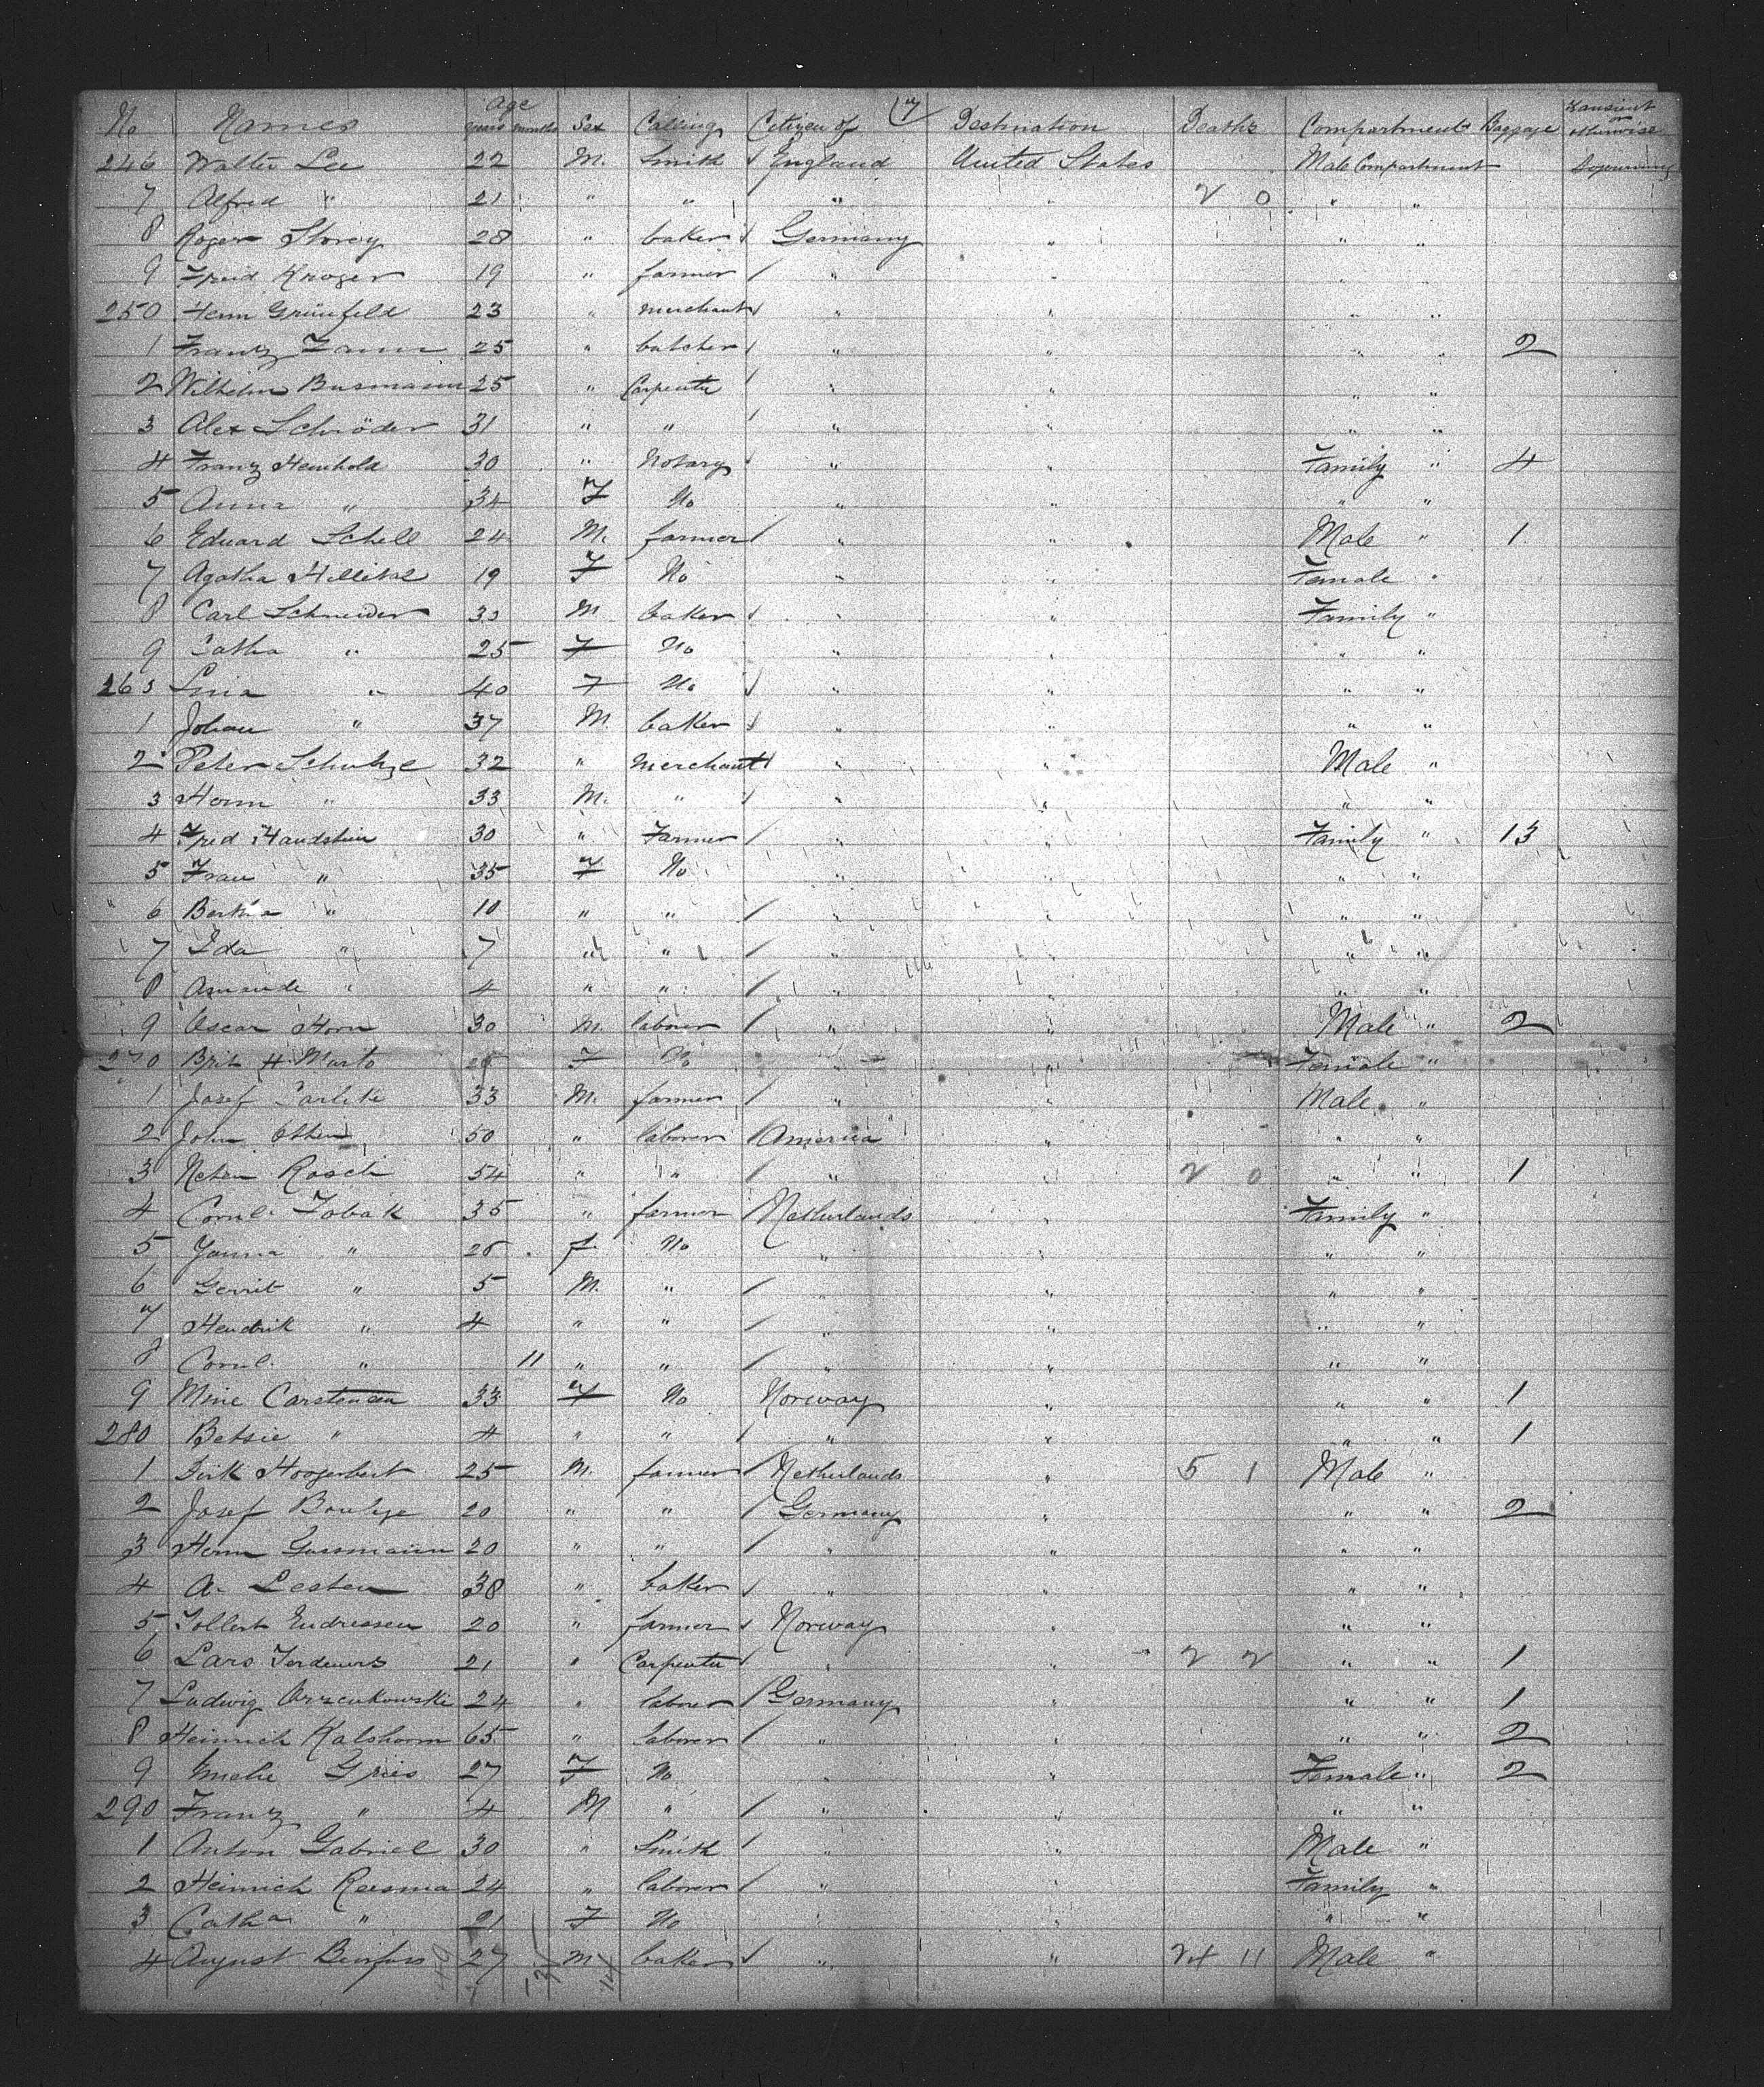 7
No Names Age years months Sex Calling Citizen of Destination Deaths Compartment Baggage Transient or otherwise
246 Walter Lee 22 M. Smith England United States Male Compartment Sojourning
7 Alfred " 21 " " " " 2 0 " "
8 Roger Storey 28 " baker Germany " " "
9 Fried Kroger 19 " farmer / " " " "
250 Herm Grünfeld 23 " merchant " " " "
1 Franz 25 " butcher " " " " 2
2 Wilhelm Busmann 25 " Carpenter / " " " "
3 Alex Schröder 31 " " / " " " "
4 Franz Heinhold 30 " Notary " " Family " 4
5 Anna " 34 F No " " " "
6 Eduard Schell 24 M. farmer / " " Male " 1
7 Agatha 19 F No " " Female "
8 Carl Schneider 33 M baker " " Family "
9 Catha " 25 F No " " " "
263 Lina " 40 F No " " " "
1 Johan " 37 M baker " " " "
2 Peter Schultze 32 " merchant " " Male "
3 Herm " 33 M. " / " " " "
4 Fred Handstein 30 " Farmer / " " Family " 13
5 Frau " 35 F No " " " "
6 Bertha " 10 " " / " " " "
7 Ida " 7 " " / " " " "
8 Amande " 4 " " / " " " "
9 Oscar Horn 30 M. laborer / " " Male " 2
270 F No " " Female "
1 Josef 33 M. farmer / " " Male "
2 John 50 " laborer / America " " "
3 Rosch 54 " " / " " 2 0 " " 1
4 Cornl. Tobak 35 " farmer / Netherlands " Family "
5 Janna " 26 f. No " " " "
6 Gerrit " 5 M. " / " " " "
7 Hendrik " 4 " " / " " " "
8 Cornl. " 11 " " / " " " "
9 Mine Carstensen 33 F No Norway " " " 1
280 Betsie " 4 " " / " " " " 1
1 Dirk Hoogerbert 25 M. farmer / Netherlands " 5 1 Male "
2 Josef 20 " " / Germany " " " 2
3 Herm Gussmann 20 " " / " " " "
4 A. Lesten 38 " baker " " " "
5 Endressen 20 " farmer Norway " " "
6 Lars 21 " Carpenter " " 2 2 " " 1
7 Ludwig 24 " laborer / Germany " " " 1
8 Heinrich Kalshoorn 65 " laborer / " " " " 2
9 Gries 27 F No " " Female " 2
290 Franz " 4 M " / " " " "
1 Anton Gabriel 30 " Smith / " " Male "
2 Heinrich Reesma 24 " laborer / " " Family "
3 Catha " 21 F No " " " "
4 August 27 M baker " " 24 11 Male "